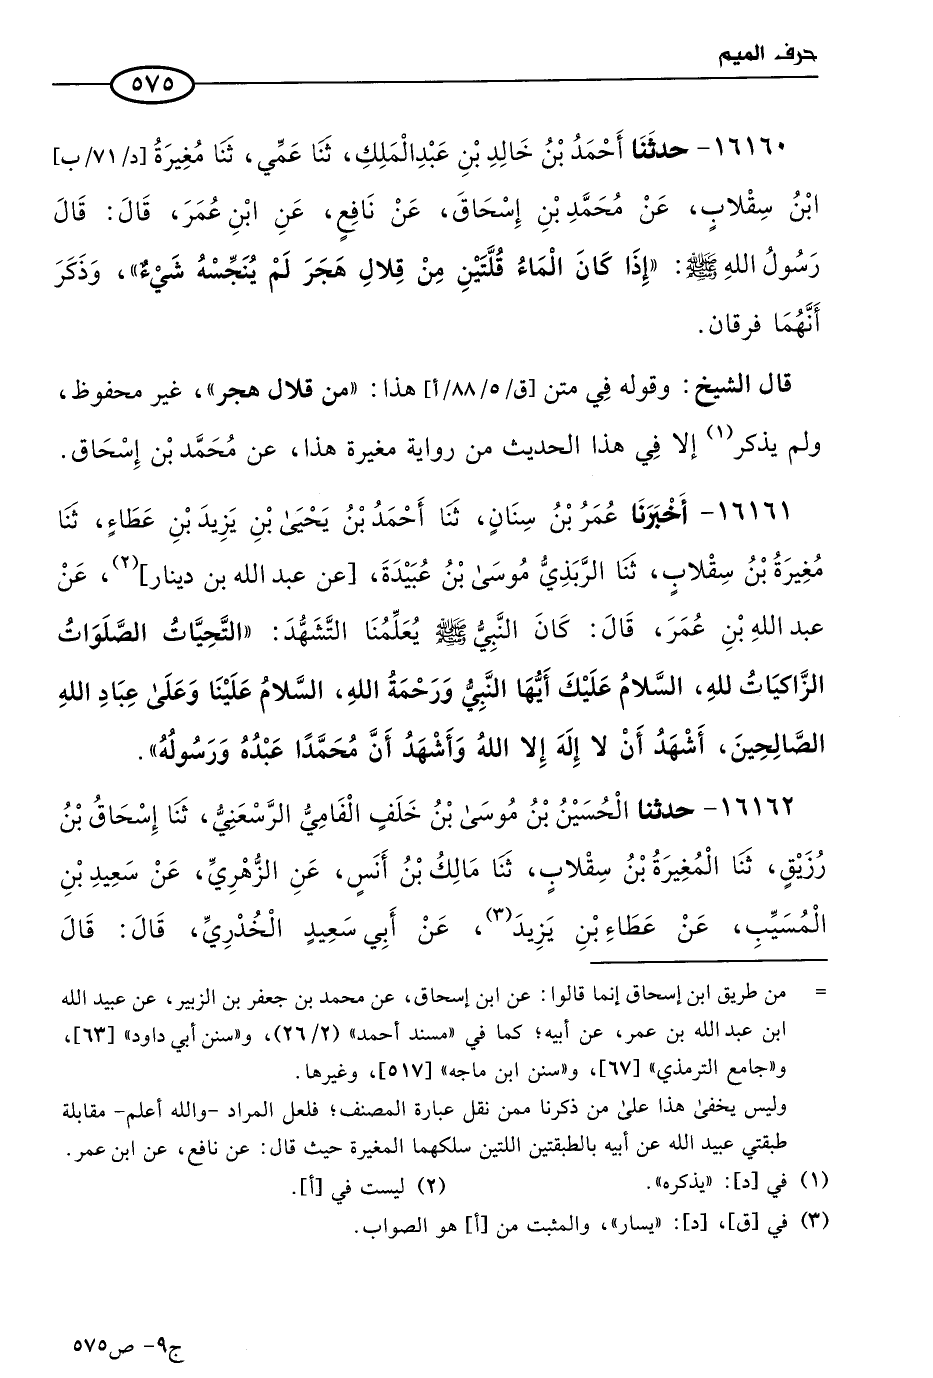 حرف الميم
٥٧٥
١٦١٦٠- حدثَنَا أَحْمَدُ بْنُ خَالِدِ بْنِ عَبْدِالْمَلِكِ، ثَنَا عَمِّي، ثَنَا مُغِيرَةُ [د/٧١/ب]
ابْنُ سِقْلابٍ، عَنْ مُحَمَّدِ بْنِ إِسْحَاقَ، عَنْ نَافِعٍ، عَنِ ابْنِ عُمَرَ، قَالَ: قَالَ
رَسُولُ اللهِ ﷺ: «إِذَا كَانَ الْمَاءُ قُلَّتَيْنِ مِنْ قِلالِ هَجَرَ لَمْ يُنَجِّسْهُ شَيْءٌ»، وَذَكَرَ
أَنَّهُمَا فرقان.
قال الشيخ: وقوله فِي متن [ق/٥/٨٨/أ] هذا: «من قلال هجر»، غير محفوظ،
ولم يذكر(١) إلا فِي هذا الحديث من رواية مغيرة هذا، عن مُحَمَّد بْن إِسْحَاق.
١٦١٦١- أَخْبَرَنَا عُمَرُ بْنُ سِنَانٍ، ثَنَا أَحْمَدُ بْنُ يَحْيَىٰ بْنِ يَزِيدَ بْنِ عَطَاءٍ، ثَنَا
مُغِيرَةُ بْنُ سِقْلابٍ، ثَنَا الرَّبَذِيُّ مُوسَىٰ بْنُ عُبَيْدَةَ، [عن عبد الله بن دينار](٢)، عَنْ
عبد اللهِ بْنِ عُمَرَ، قَالَ: كَانَ النَّبِيُّ ﷺ يُعَلِّمُنَا التَّشَهُّدَ: «التَّحِيَّاتُ الصَّلَوَاتُ
الزَّاكِيَاتُ للهِ، السَّلامُ عَلَيْكَ أَيُّهَا النَّبِيُّ وَرَحْمَةُ اللهِ، السَّلامُ عَلَيْنَا وَعَلَىٰ عِبَادِ اللهِ
الصَّالِحِينَ، أَشْهَدُ أَنْ لا إِلَهَ إِلا اللهُ وَأَشْهَدُ أَنَّ مُحَمَّدًا عَبْدُهُ وَرَسُولُهُ».
١٦١٦٢- حدثنا الْحُسَيْنُ بْنُ مُوسَىٰ بْنُ خَلَفٍ الْفَامِيُّ الرَّسْعَنِيُّ، ثَنَا إِسْحَاقُ بْنُ
رُزَيْقٍ، ثَنَا الْمُغِيرَةُ بْنُ سِقْلابٍ، ثَنَا مَالِكُ بْنُ أَنَسٍ، عَنِ الزُّهْرِيِّ، عَنْ سَعِيدِ بْنِ
الْمُسَيِّبِ، عَنْ عَطَاءِ بْنِ يَزِيدَ(٣)، عَنْ أَبِي سَعِيدٍ الْخُدْرِيِّ، قَالَ: قَالَ
= من طريق ابن إسحاق إنما قالوا: عن ابن إسحاق، عن محمد بن جعفر بن الزبير، عن عبيد الله
ابن عبد الله بن عمر، عن أبيه؛ كما في «مسند أحمد» (٢٦/٢)، و«سنن أبي داود» [٦٣]،
و«جامع الترمذي» [٦٧]، و«سنن ابن ماجه» [٥١٧]، وغيرها.
وليس يخفىٰ هذا علىٰ من ذكرنا ممن نقل عبارة المصنف؛ فلعل المراد -والله أعلم- مقابلة
طبقتي عبيد الله عن أبيه بالطبقتين اللتين سلكهما المغيرة حيث قال: عن نافع، عن ابن عمر.
(١) في [د]: «يذكره». (٢) ليست في [أ].
(٣) في [ق]، [د]: «يسار»، والمثبت من [أ] هو الصواب.
ج٩- ص٥٧٥